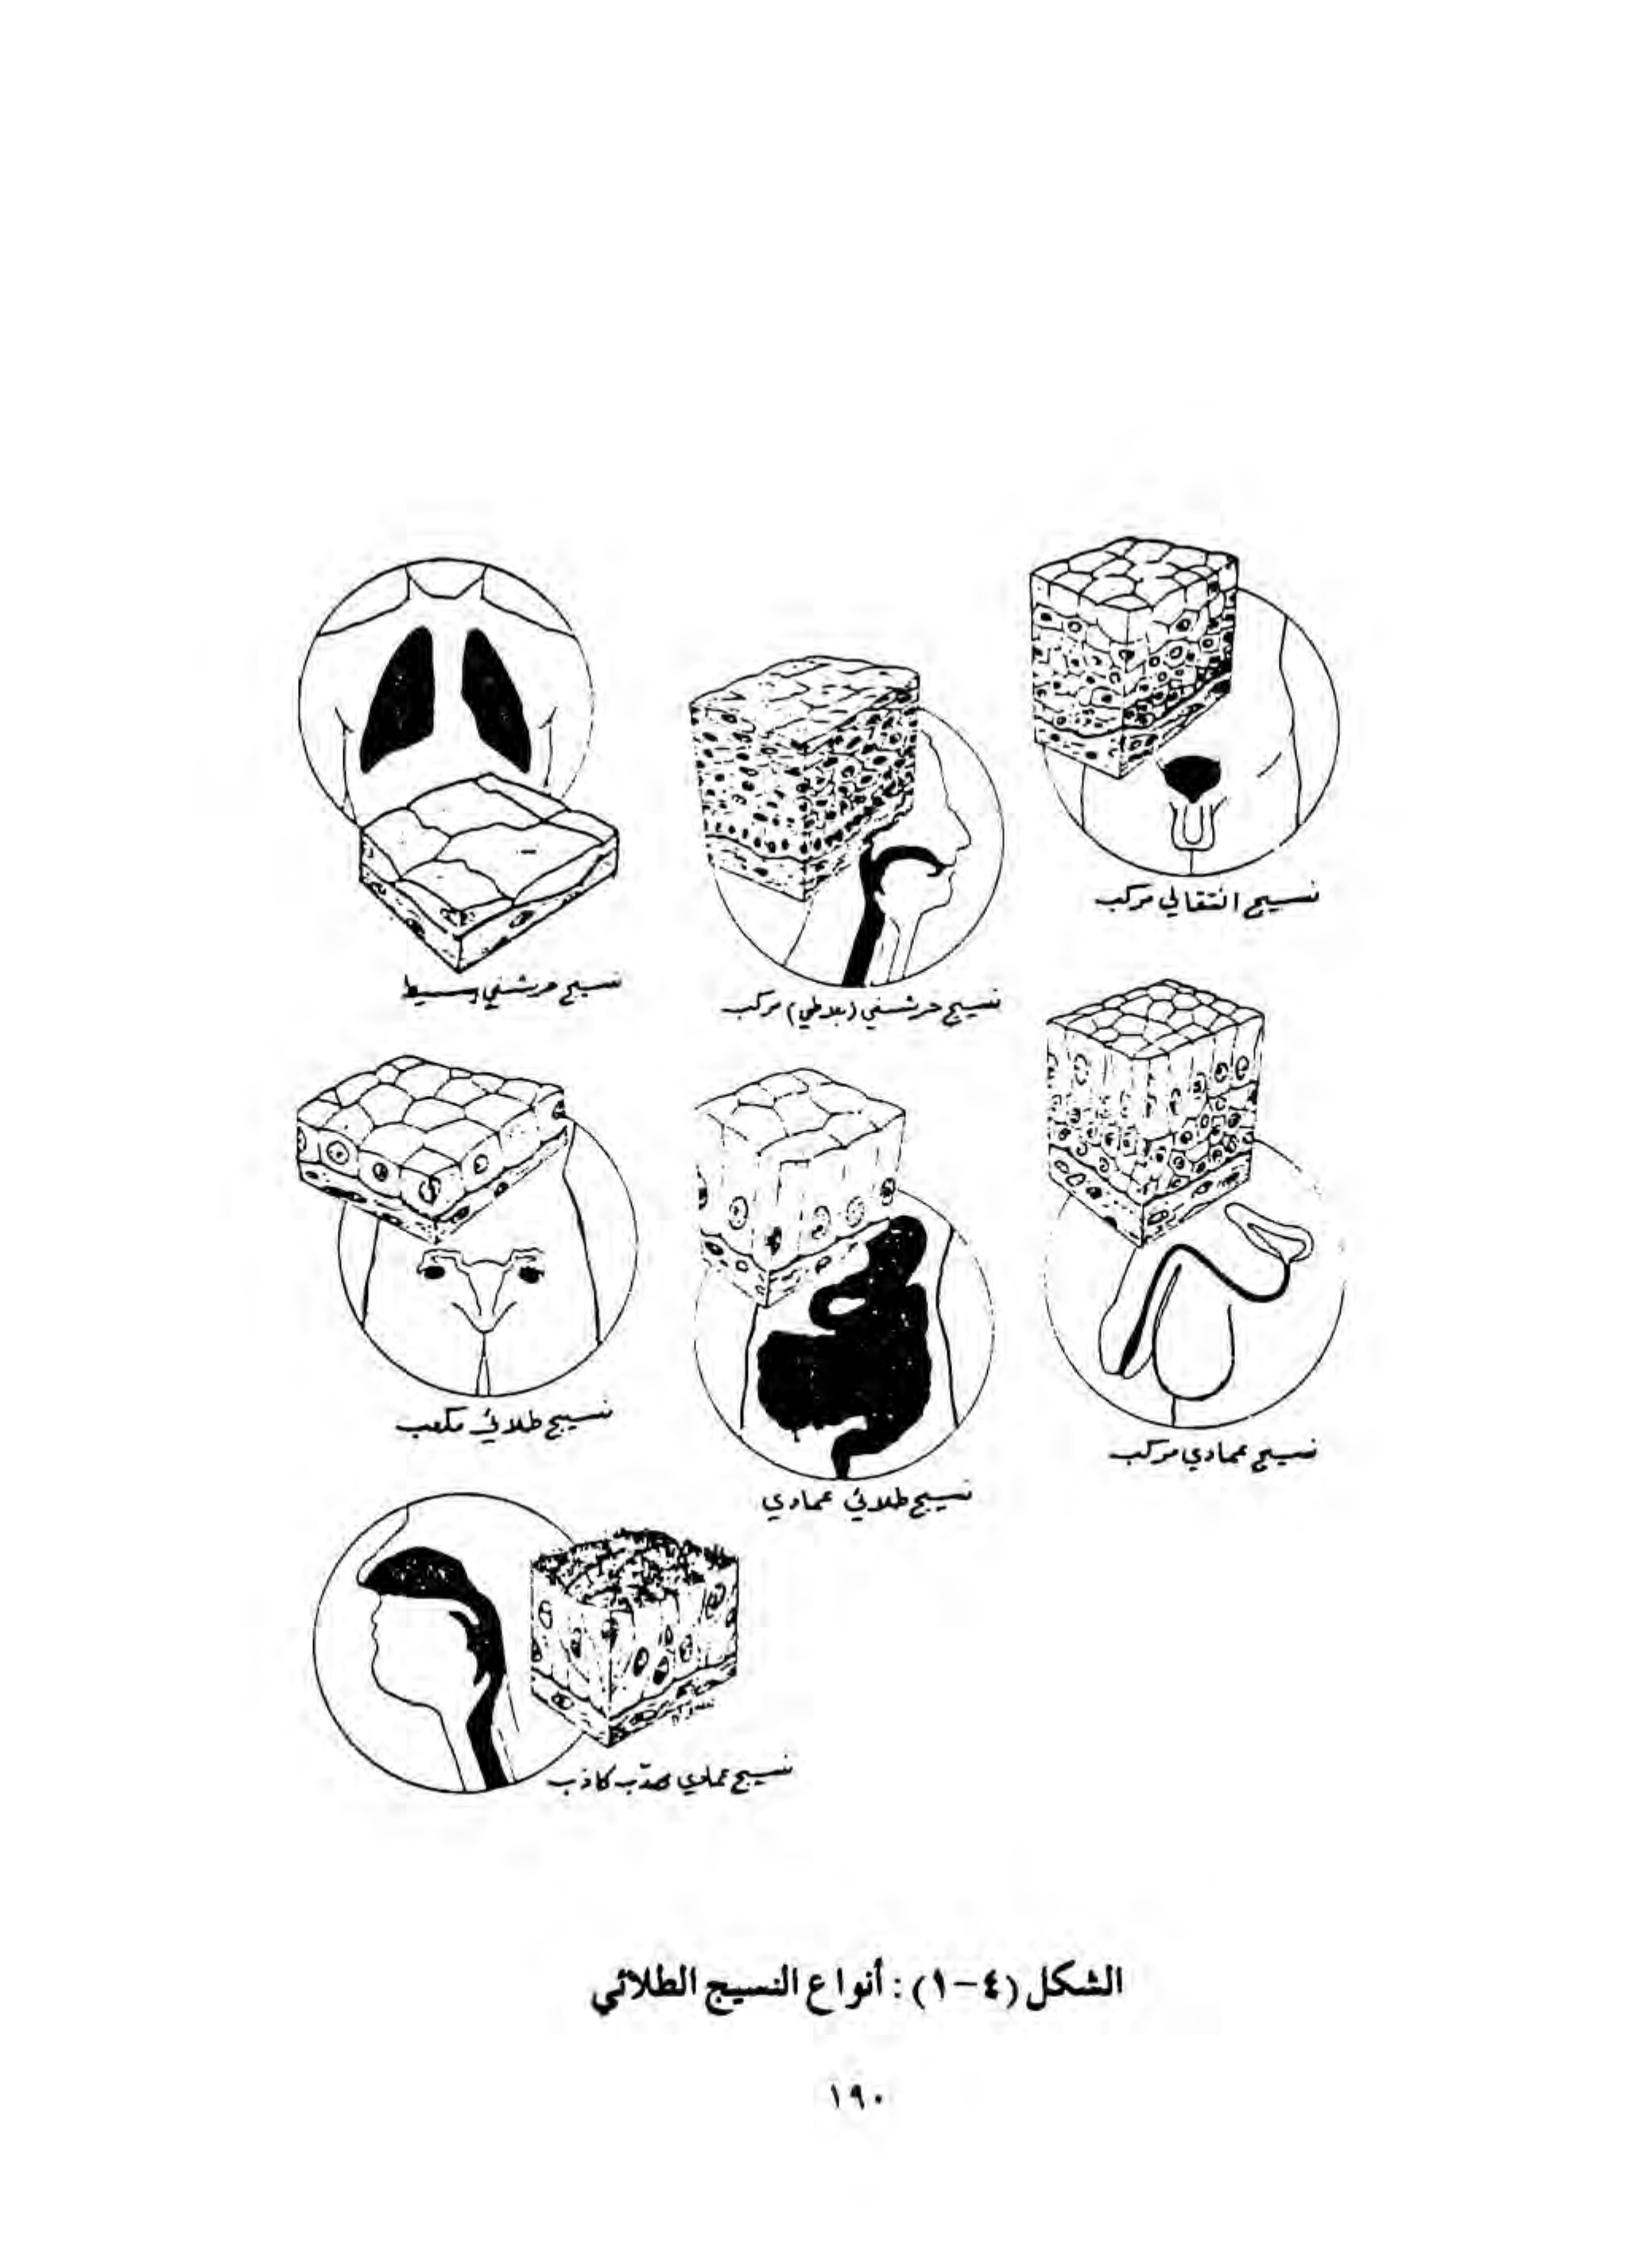 نسيج انتقالي مركب
نسيج حرشفي (بلاطي) مركب
نسيج حرشفي بسيط
نسيج عمادي مركب
نسيج طلائي عمادي
نسيج طلائي مكعب
نسيج عمادي مهدّب كاذب
الشكل (٤-١) : أنواع النسيج الطلائي
١٩٠